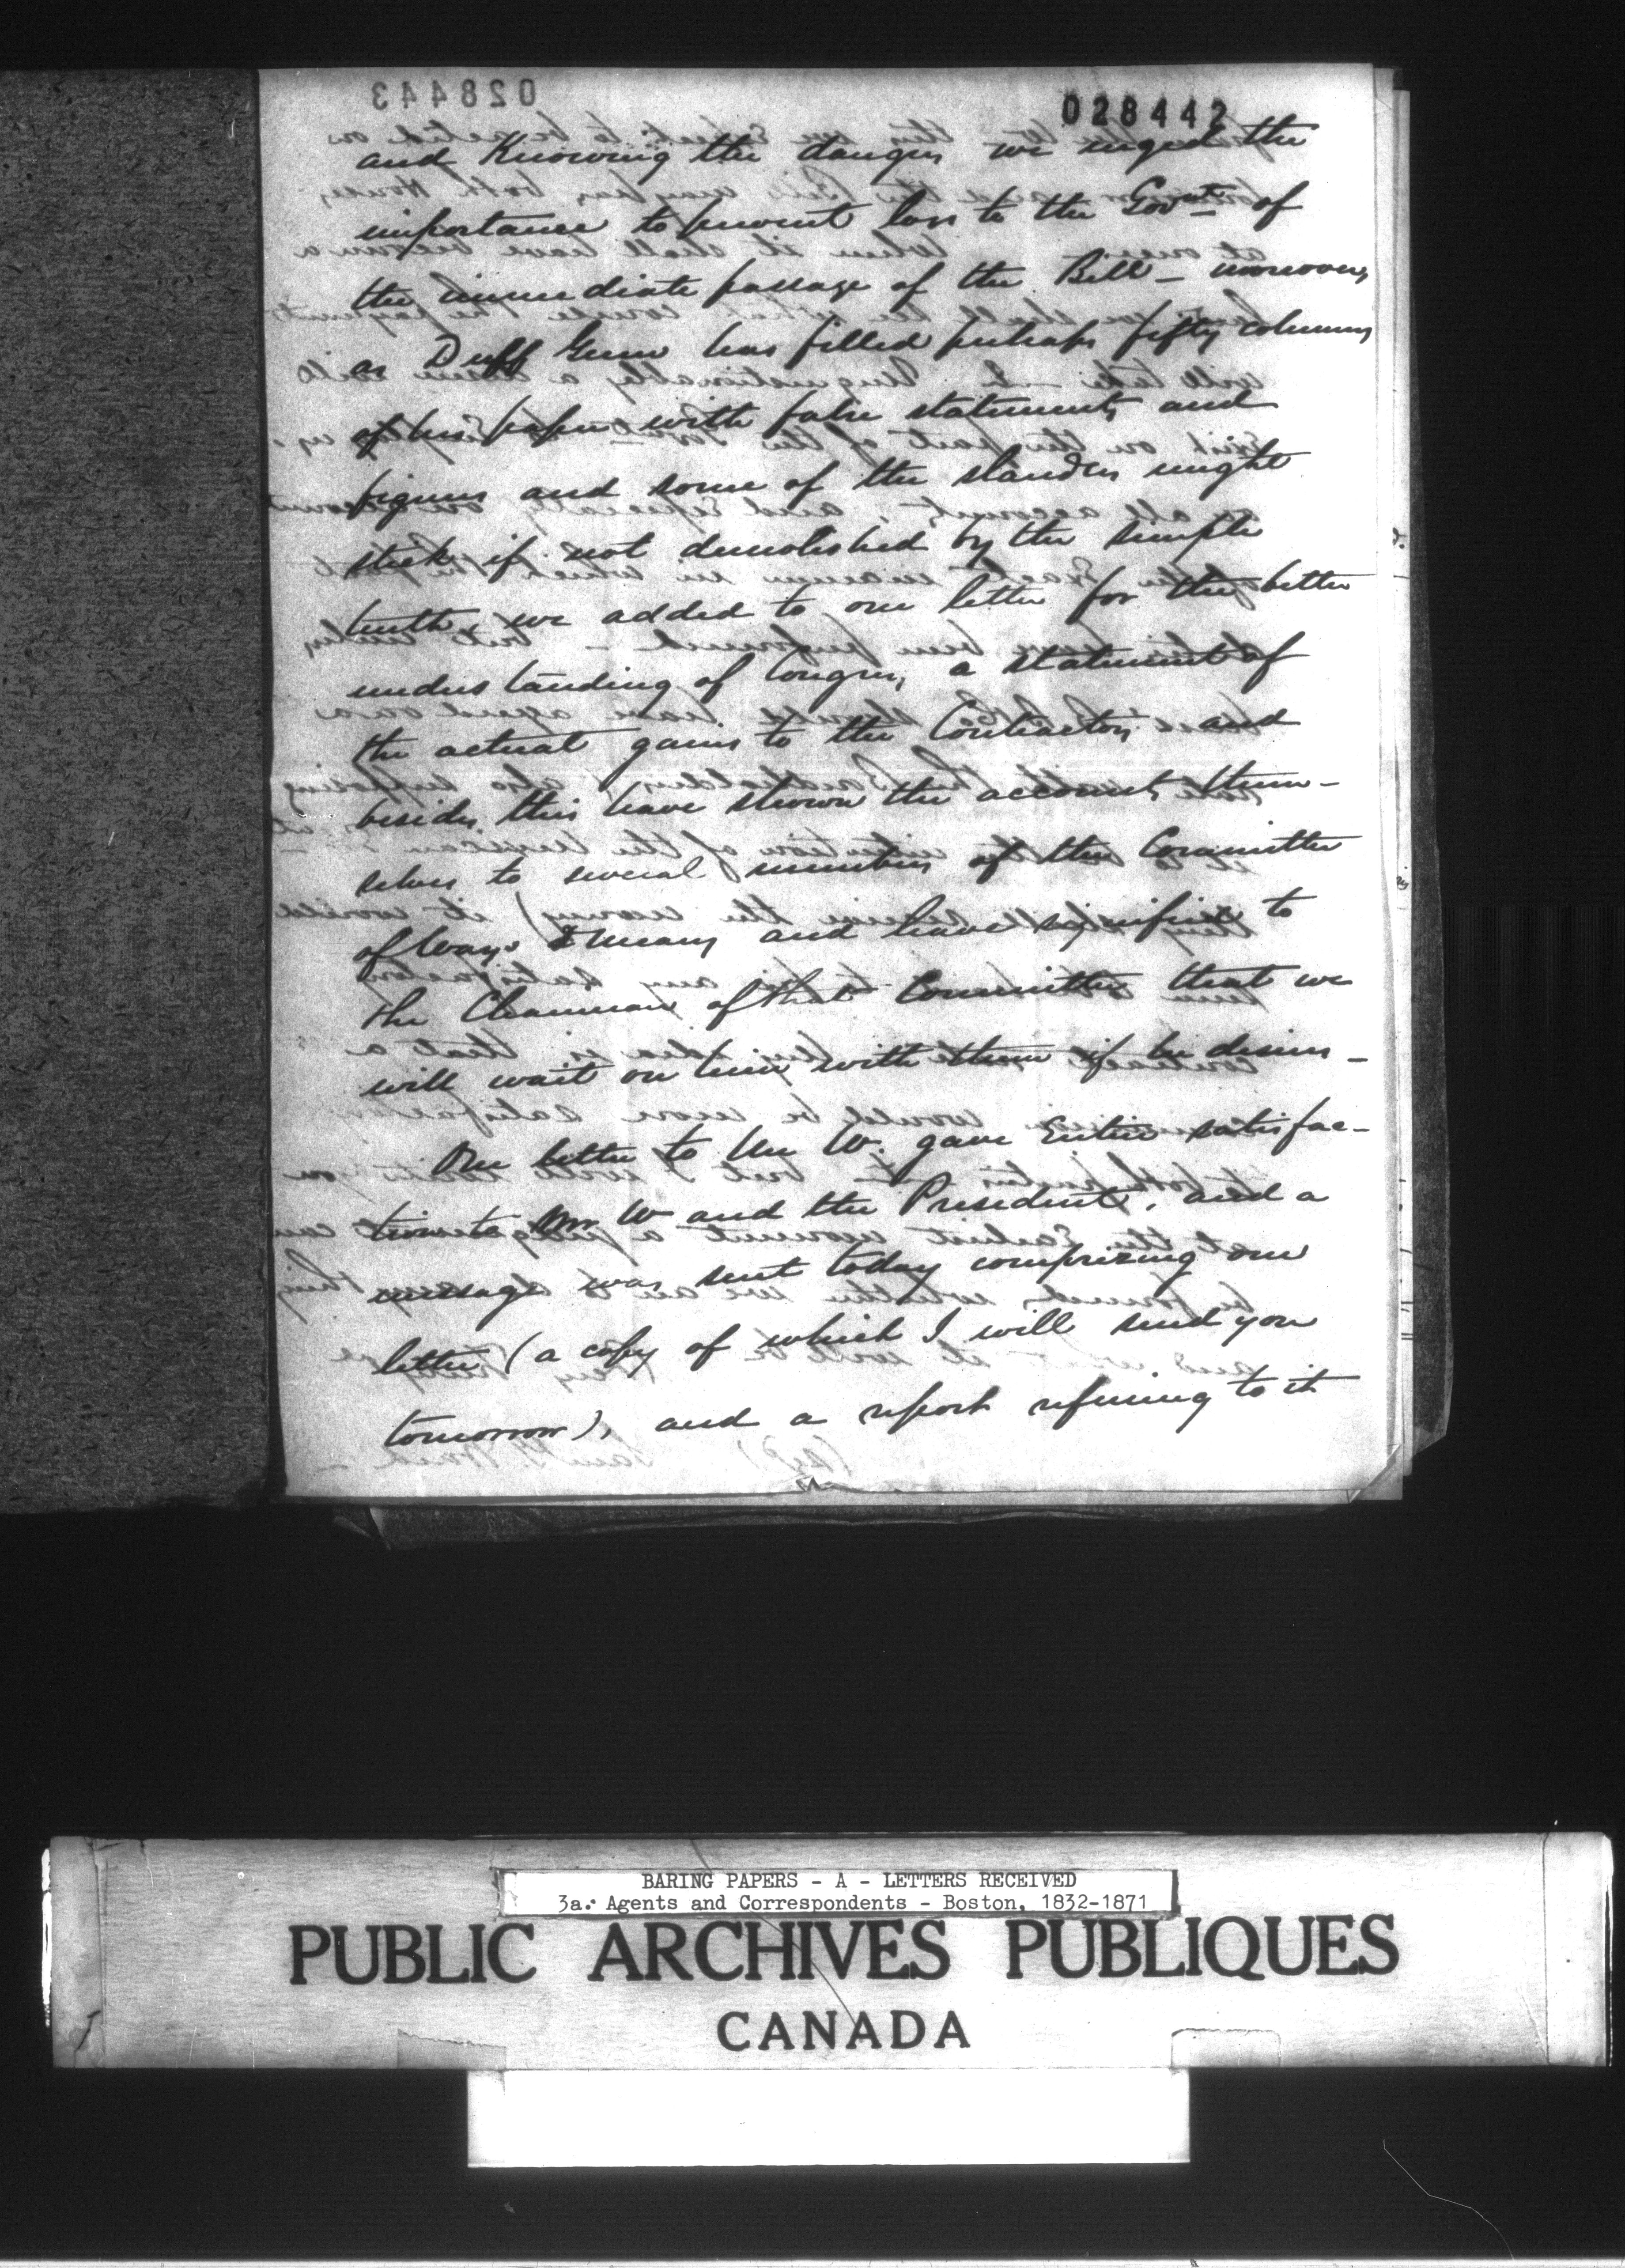 028442
and Knowing the danger we urged the
importance to prevent loss to the Govt. of
the immediate passage of the Bill – moreover,
as Duff Green has filled perhaps fifty columns
of his paper with false statements and
figures and some of the slanders might
stick if not demolished by the simple
truth, we added to our letter for the better
understanding of Congress, a statement of
the actual gains to the Contractors and
besides this have shown the accounts them-
selves to several members of the Committee
of Ways & Means and have signified to
the Chairman of that Committee that we
will wait on him with them if he desires –
Our letter to Mr W. gave Entire satisfac-
tion to Mr W and the President, and a
message was sent today comprising our
letter (a copy of which I will send you
tomorrow), and a report refering to it
BARING PAPERS - A - LETTERS RECEIVED
3a. Agents and Correspondents - Boston, 1832-1871
PUBLIC ARCHIVES PUBLIQUES
CANADA